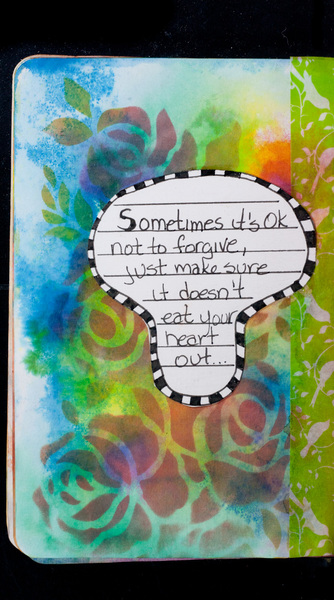 Sometimes it's Ok
not to forgive,
just make sure
it doesn't
eat your
heart
out...